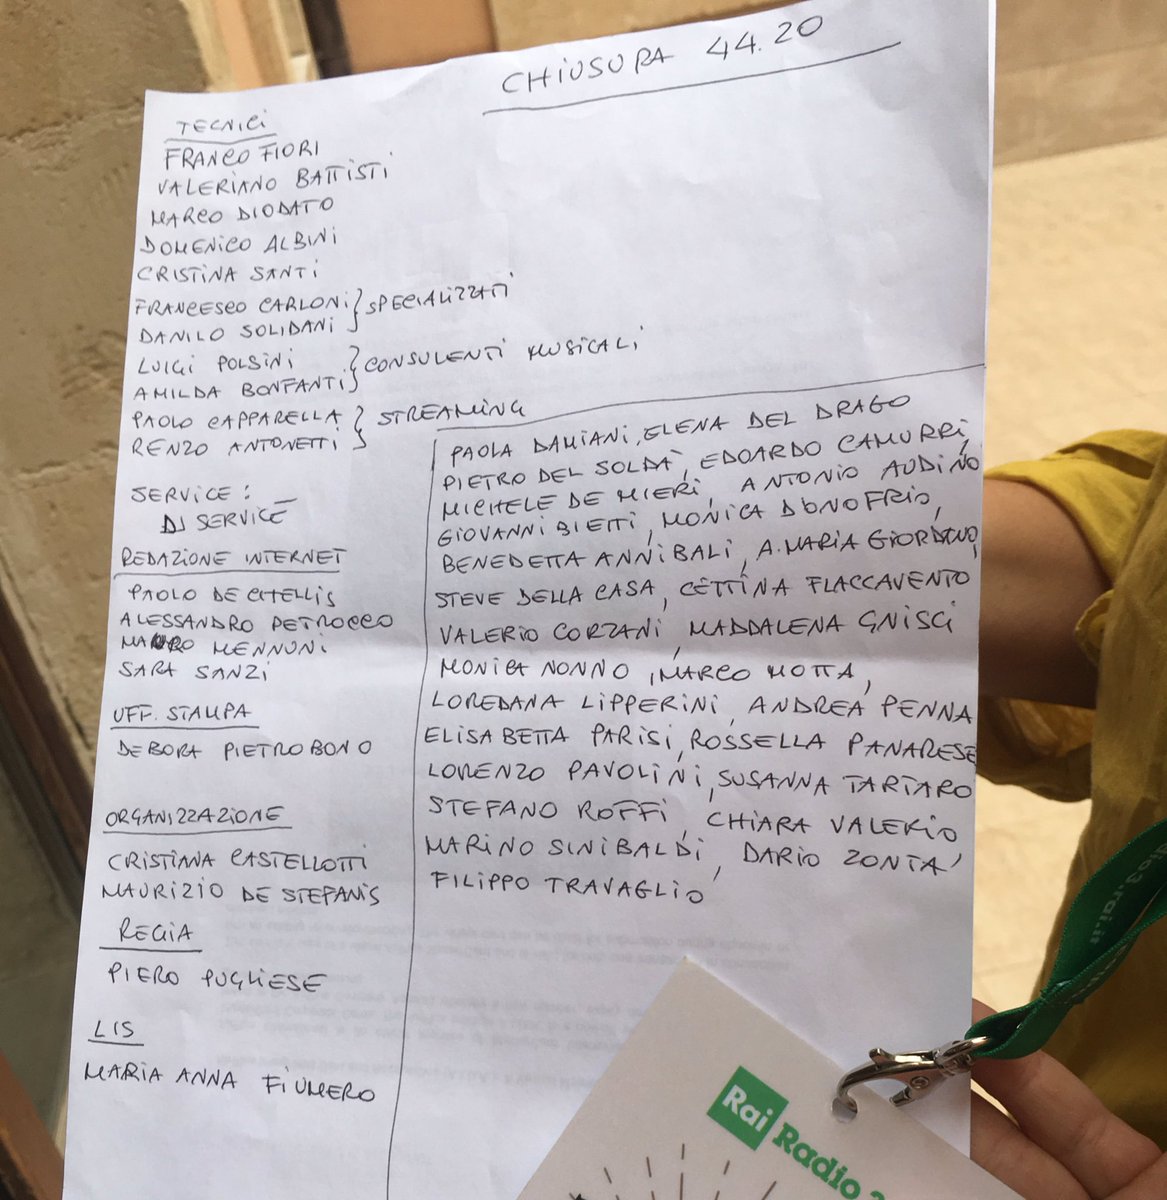 CHIUSURA 44.20
TECNICI
FRANCO FIORI
VALERIANO BATTISTI
MARCO DIODATO
DOMENICO ALBINI
CRISTINA SANTI
FRANCESCO CARLONI } SPECIALIZZATI
DANILO SOLIDANI
LUIGI POLSINI } CONSULENTI MUSICALI
AMILDA BONFANTI
PAOLO CAPPARELLA } STREAMING
RENZO ANTONETTI
SERVICE:
DJ SERVICE
REDAZIONE INTERNET
PAOLO DE CHELLIS
ALESSANDRO PETROCCO
MAURO MENNUNI
SARA SANZI
UFF. STAMPA
DEBORA PIETROBONO
ORGANIZZAZIONE
CRISTIANA CASTELLOTTI
MAURIZIO DE STEFANIS
REGIA
PIERO PUGLIESE
LIS
MARIA ANNA FIUMERO
PAOLA DAMIANI, ELENA DEL DRAGO
PIETRO DEL SOLDÀ, EDOARDO CAMURRI,
MICHELE DE MIERI, ANTONIO AUDINO
GIOVANNI BIETTI, MONICA DONOFRIO,
BENEDETTA ANNIBALI, A.MARIA GIORDANO,
STEVE DELLA CASA, CETTINA FLACCAVENTO
VALERIO CORZANI, MADDALENA GNISCI
MONICA NONNO, MARCO MOTTA,
LOREDANA LIPPERINI, ANDREA PENNA
ELISABETTA PARISI, ROSSELLA PANARESE
LORENZO PAVOLINI, SUSANNA TARTARO
STEFANO ROFFI, CHIARA VALERIO
MARINO SINIBALDI, DARIO ZONTA,
FILIPPO TRAVAGLIO
Rai Radio
3.rai.it